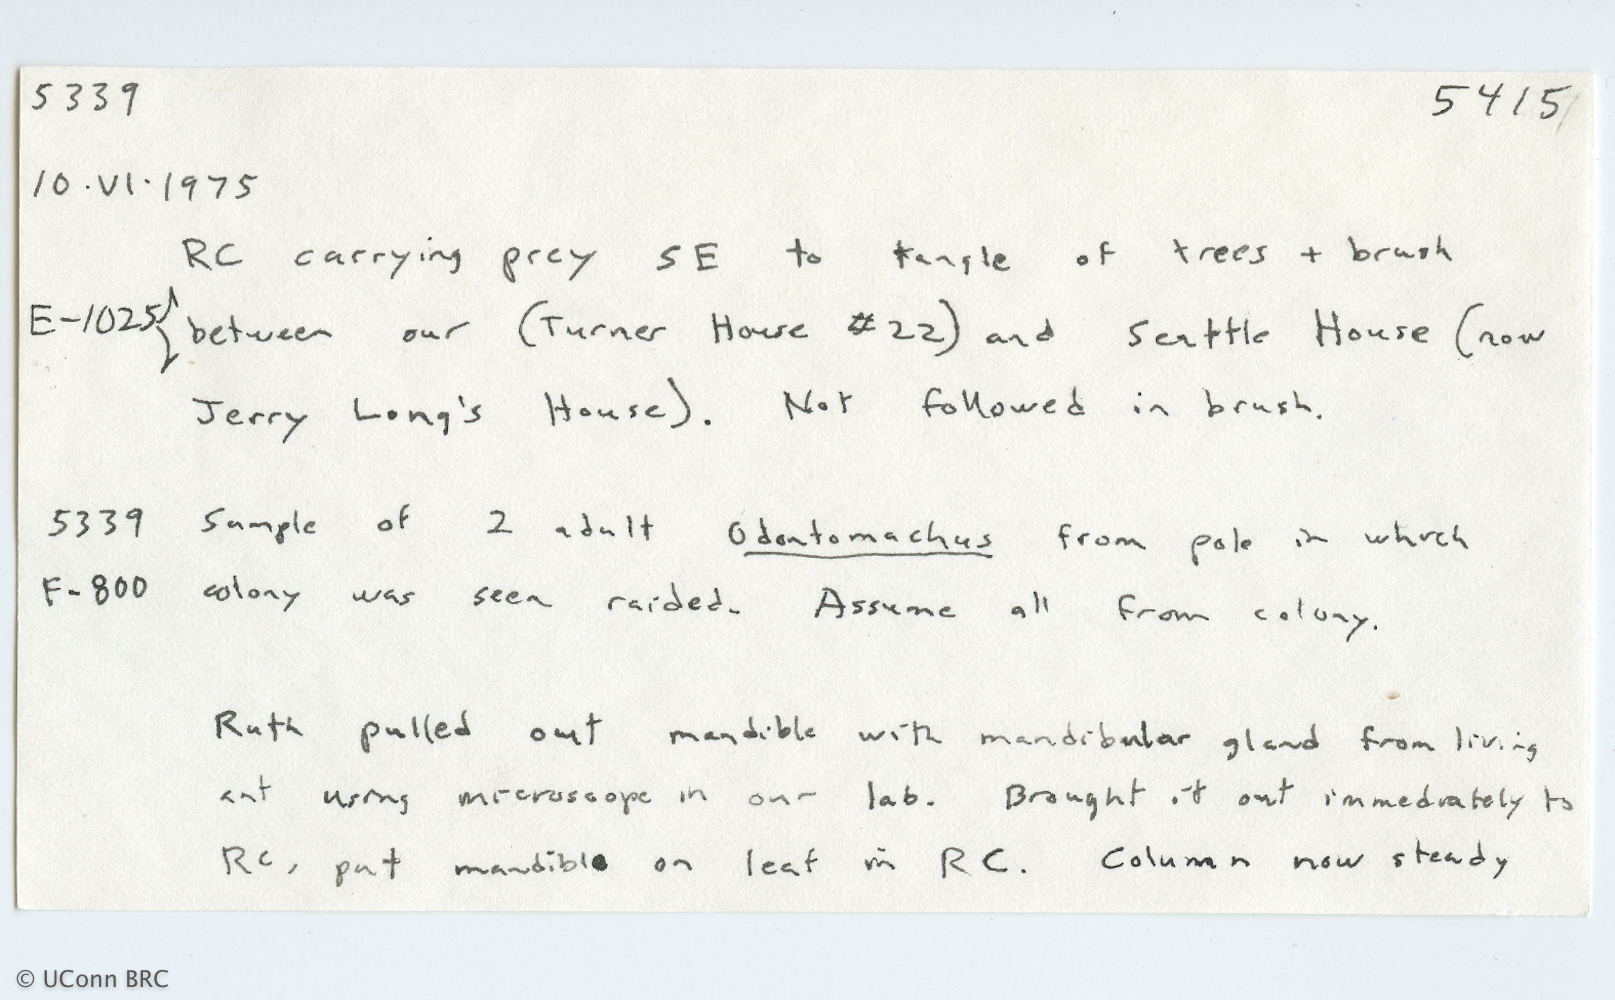 5339 5415
10.VI.1975
RC carrying prey SE to tangle of trees + brush
E-1025} between our (Turner House #22) and Seattle House (now
Jerry Long's House). Not followed in brush.
5339 Sample of 2 adult Odontomachus from pole in which
F-800 colony was seen raided. Assume all from colony.
Ruth pulled out mandible with mandibular gland from living
ant using microscope in our lab. Brought it out immediately to
RC, put mandible on leaf in RC. Column now steady
© UConn BRC